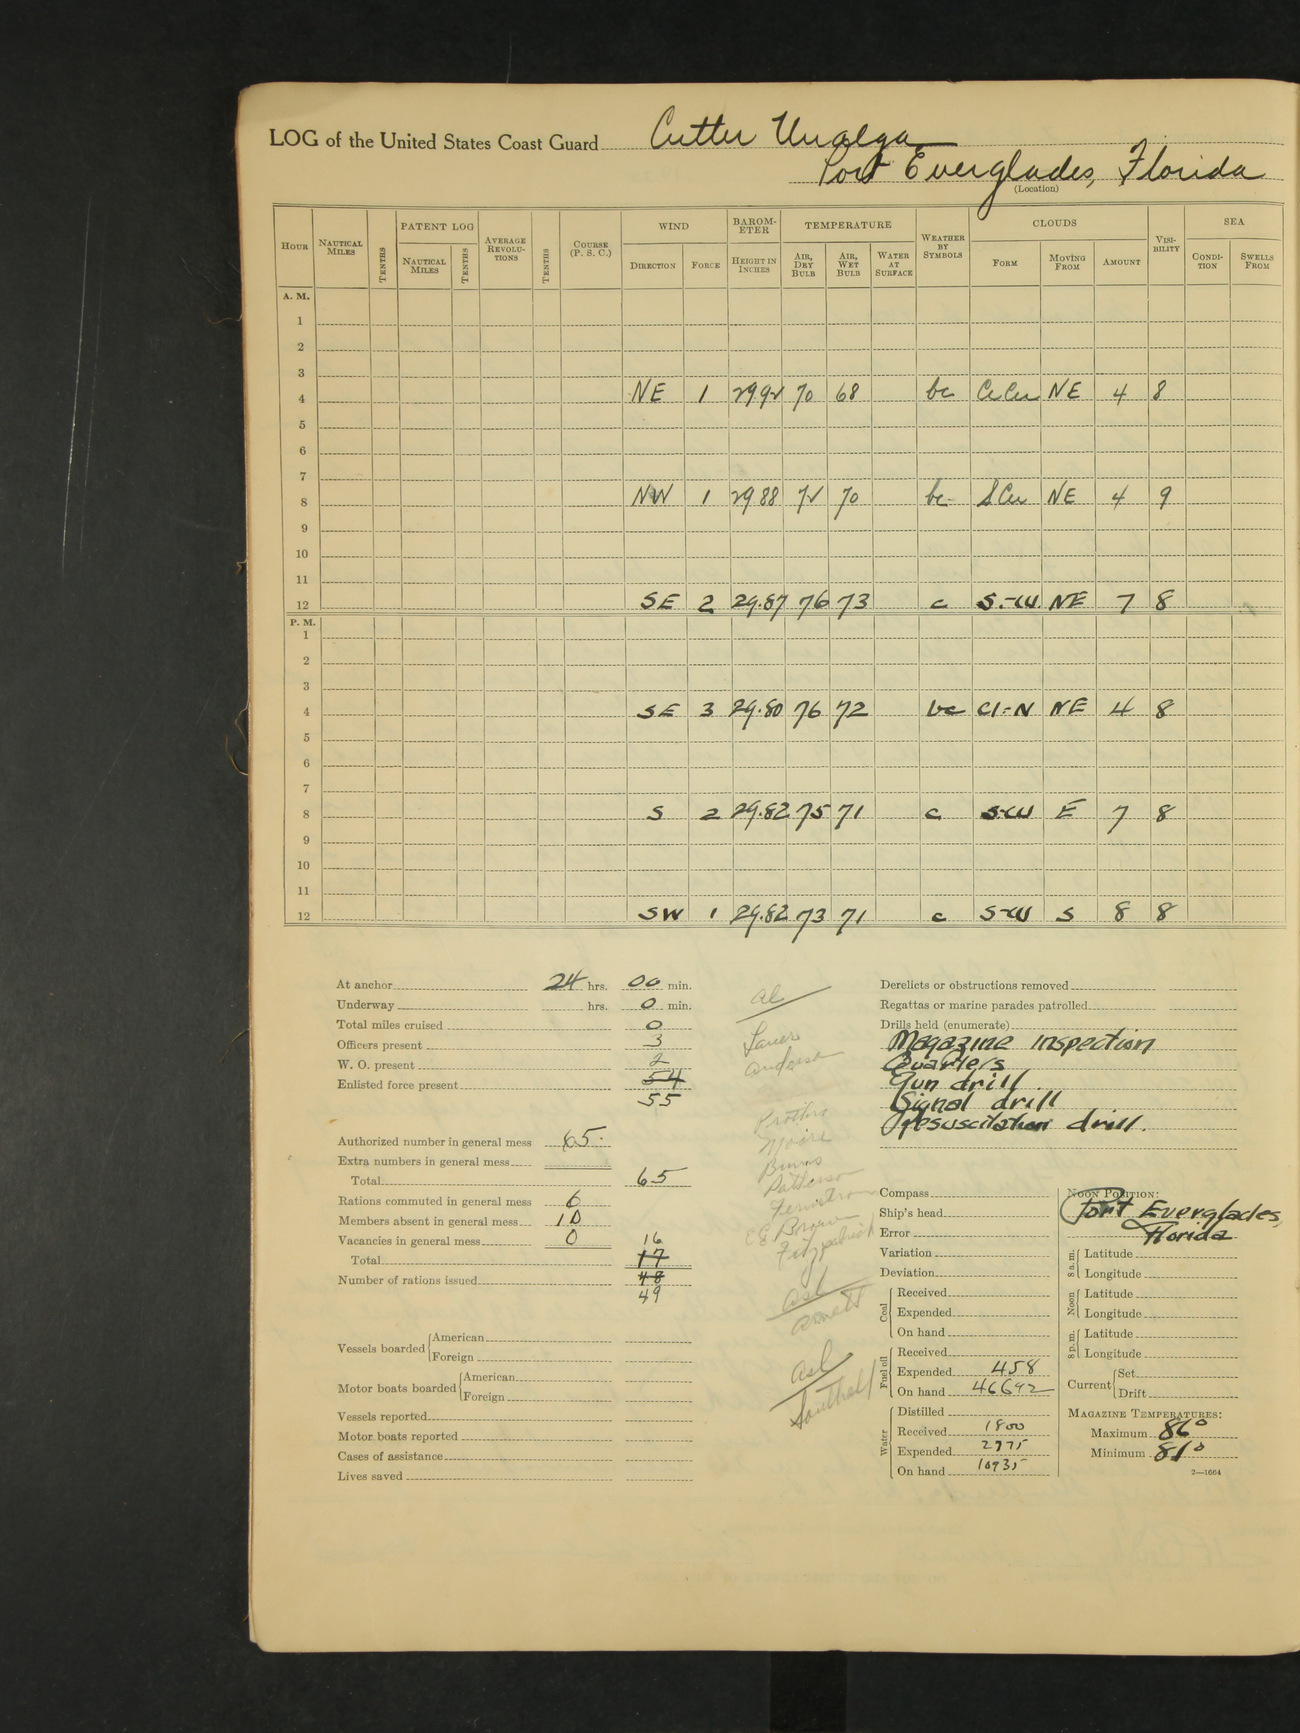 LOG of the United States Coast Guard Cutter Unalga
Port Everglades, Florida
(Location)
HOUR NAUTICAL MILES TENTHS PATENT LOG NAUTICAL MILES TENTHS AVERAGE REVOLU-TIONS TENTHS COURSE (P. S. C.) WIND DIRECTION FORCE BAROM-ETER HEIGHT IN INCHES TEMPERATURE AIR, DRY BULB AIR, WET BULB WATER AT SURFACE WEATHER BY SYMBOLS CLOUDS FORM MOVING FROM AMOUNT VISI-BILITY SEA CONDI-TION SWELLS FROM
A. M.
1
2
3
4 NE 1 29 92 70 68 bc CiCu NE 4 8
5
6
7
8 NW 1 29 88 72 70 bc SCu NE 4 9
9
10
11
12 SE 2 29.87 76 73 c S.-CU NE 7 8
P. M.
1
2
3
4 SE 3 29.80 76 72 bc CI-N NE 4 8
5
6
7
8 S 2 29.82 75 71 c S-CU E 7 8
9
10
11
12 SW 1 29.82 73 71 c S-CU S 8 8
At anchor 24 hrs. 00 min.
Underway hrs. 0 min.
Total miles cruised 0
Officers present 3
W. O. present 2
Enlisted force present 54
55
Authorized number in general mess 65
Extra numbers in general mess
Total 65
Rations commuted in general mess 6
Members absent in general mess 10
Vacancies in general mess 0 16
Total 17
Number of rations issued 48
49
Vessels boarded American
Foreign
Motor boats boarded American
Foreign
Vessels reported
Motor boats reported
Cases of assistance
Lives saved
al
Anderson
Prothro
Moore
Burns
Patterson
Fernstrom
CE Brown
Fitzpatrick
asl
Arnett
asl
Southall
Derelicts or obstructions removed
Regattas or marine parades patrolled
Drills held (enumerate)
Magazine inspection
Quarters
Gun drill
Signal drill
Resuscitation drill.
Compass
Ship's head
Error
Variation
Deviation
Coal Received
Expended
On hand
Fuel oil Received
Expended 458
On hand 46692
Water Distilled
Received 1800
Expended 2975
On hand 10935
NOON POSITION:
Port Everglades,
Florida
8 a.m. Latitude
Longitude
Noon Latitude
Longitude
8 p.m. Latitude
Longitude
Current Set
Drift
MAGAZINE TEMPERATURES:
Maximum 86°
Minimum 81°
2—1664